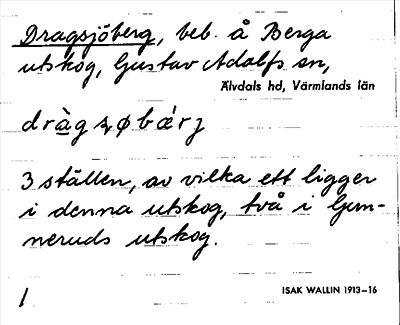 Dragsjöberg, beb. å Berga
utskog, Gustav Adolfs sn,
Älvdals hd, Värmlands län
3 ställen, av vilka ett ligger
i denna utskog, två i Gum-
neruds utskog.
1
ISAK WALLIN 1913–16